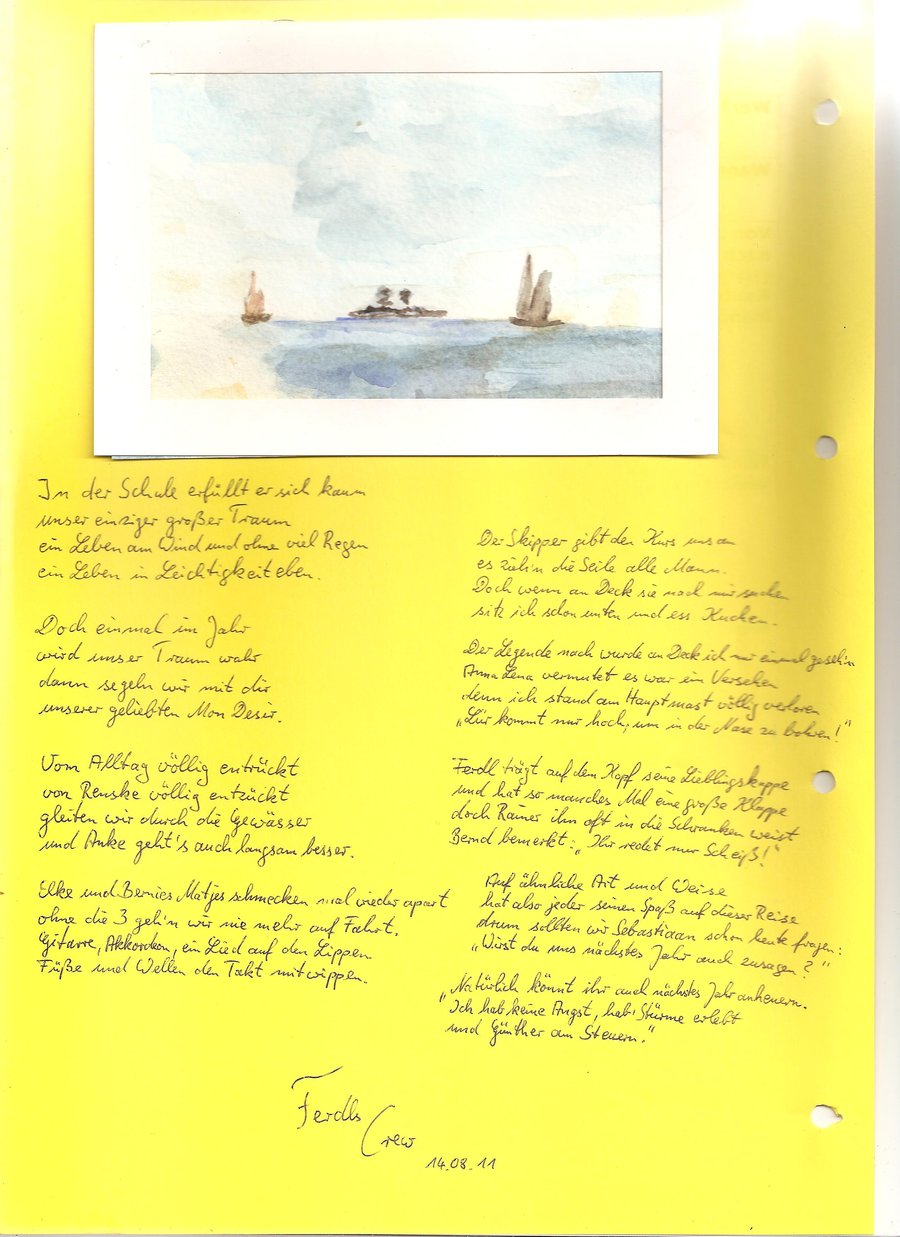 In der Schule erfüllt er sich kaum
unser einziger großer Traum
ein Leben am Wind und ohne viel Regen
ein Leben in Leichtigkeit eben.
Doch einmal im Jahr
wird unser Traum wahr
dann segeln wir mit dir
unserer geliebten Mon Desir.
Vom Alltag völlig entrückt
von Renske völlig entzückt
gleiten wir durch die Gewässer
und Anke geht's auch langsam besser.
Elke und Bernies Matjes schmecken mal wieder apart
ohne die 3 geh'n wir nie mehr auf Fahrt.
Gitarre, Akkordeon, ein Lied auf den Lippen
Füße und Wellen den Takt mitwippen.
Der Skipper gibt den Kurs uns an
es zieh'n die Seile alle Mann.
Doch wenn an Deck sie nach mir suchen
sitz ich schon unten und ess Kuchen.
Der Legende nach wurde an Deck ich nur einmal geseh'n
Anna Lena vermutet es war ein Versehen
denn ich stand am Hauptmast völlig verloren
„Lür kommt nur hoch, um in der Nase zu bohren!"
Ferdl trägt auf dem Kopf seine Lieblingskappe
und hat so manches Mal eine große Klappe
doch Rainer ihn oft in die Schranken weist
Bernd bemerkt: „Ihr redet nur Scheiß!"
Auf ähnliche Art und Weise
hat also jeder seinen Spaß auf dieser Reise
drum sollten wir Sebastiaan schon heute fragen:
„Wirst du uns nächstes Jahr auch zusagen?"
„Natürlich könnt ihr auch nächstes Jahr anheuern.
Ich hab keine Angst, hab' Stürme erlebt
und Günther am Steuern."
Ferdls Crew
14.08.11